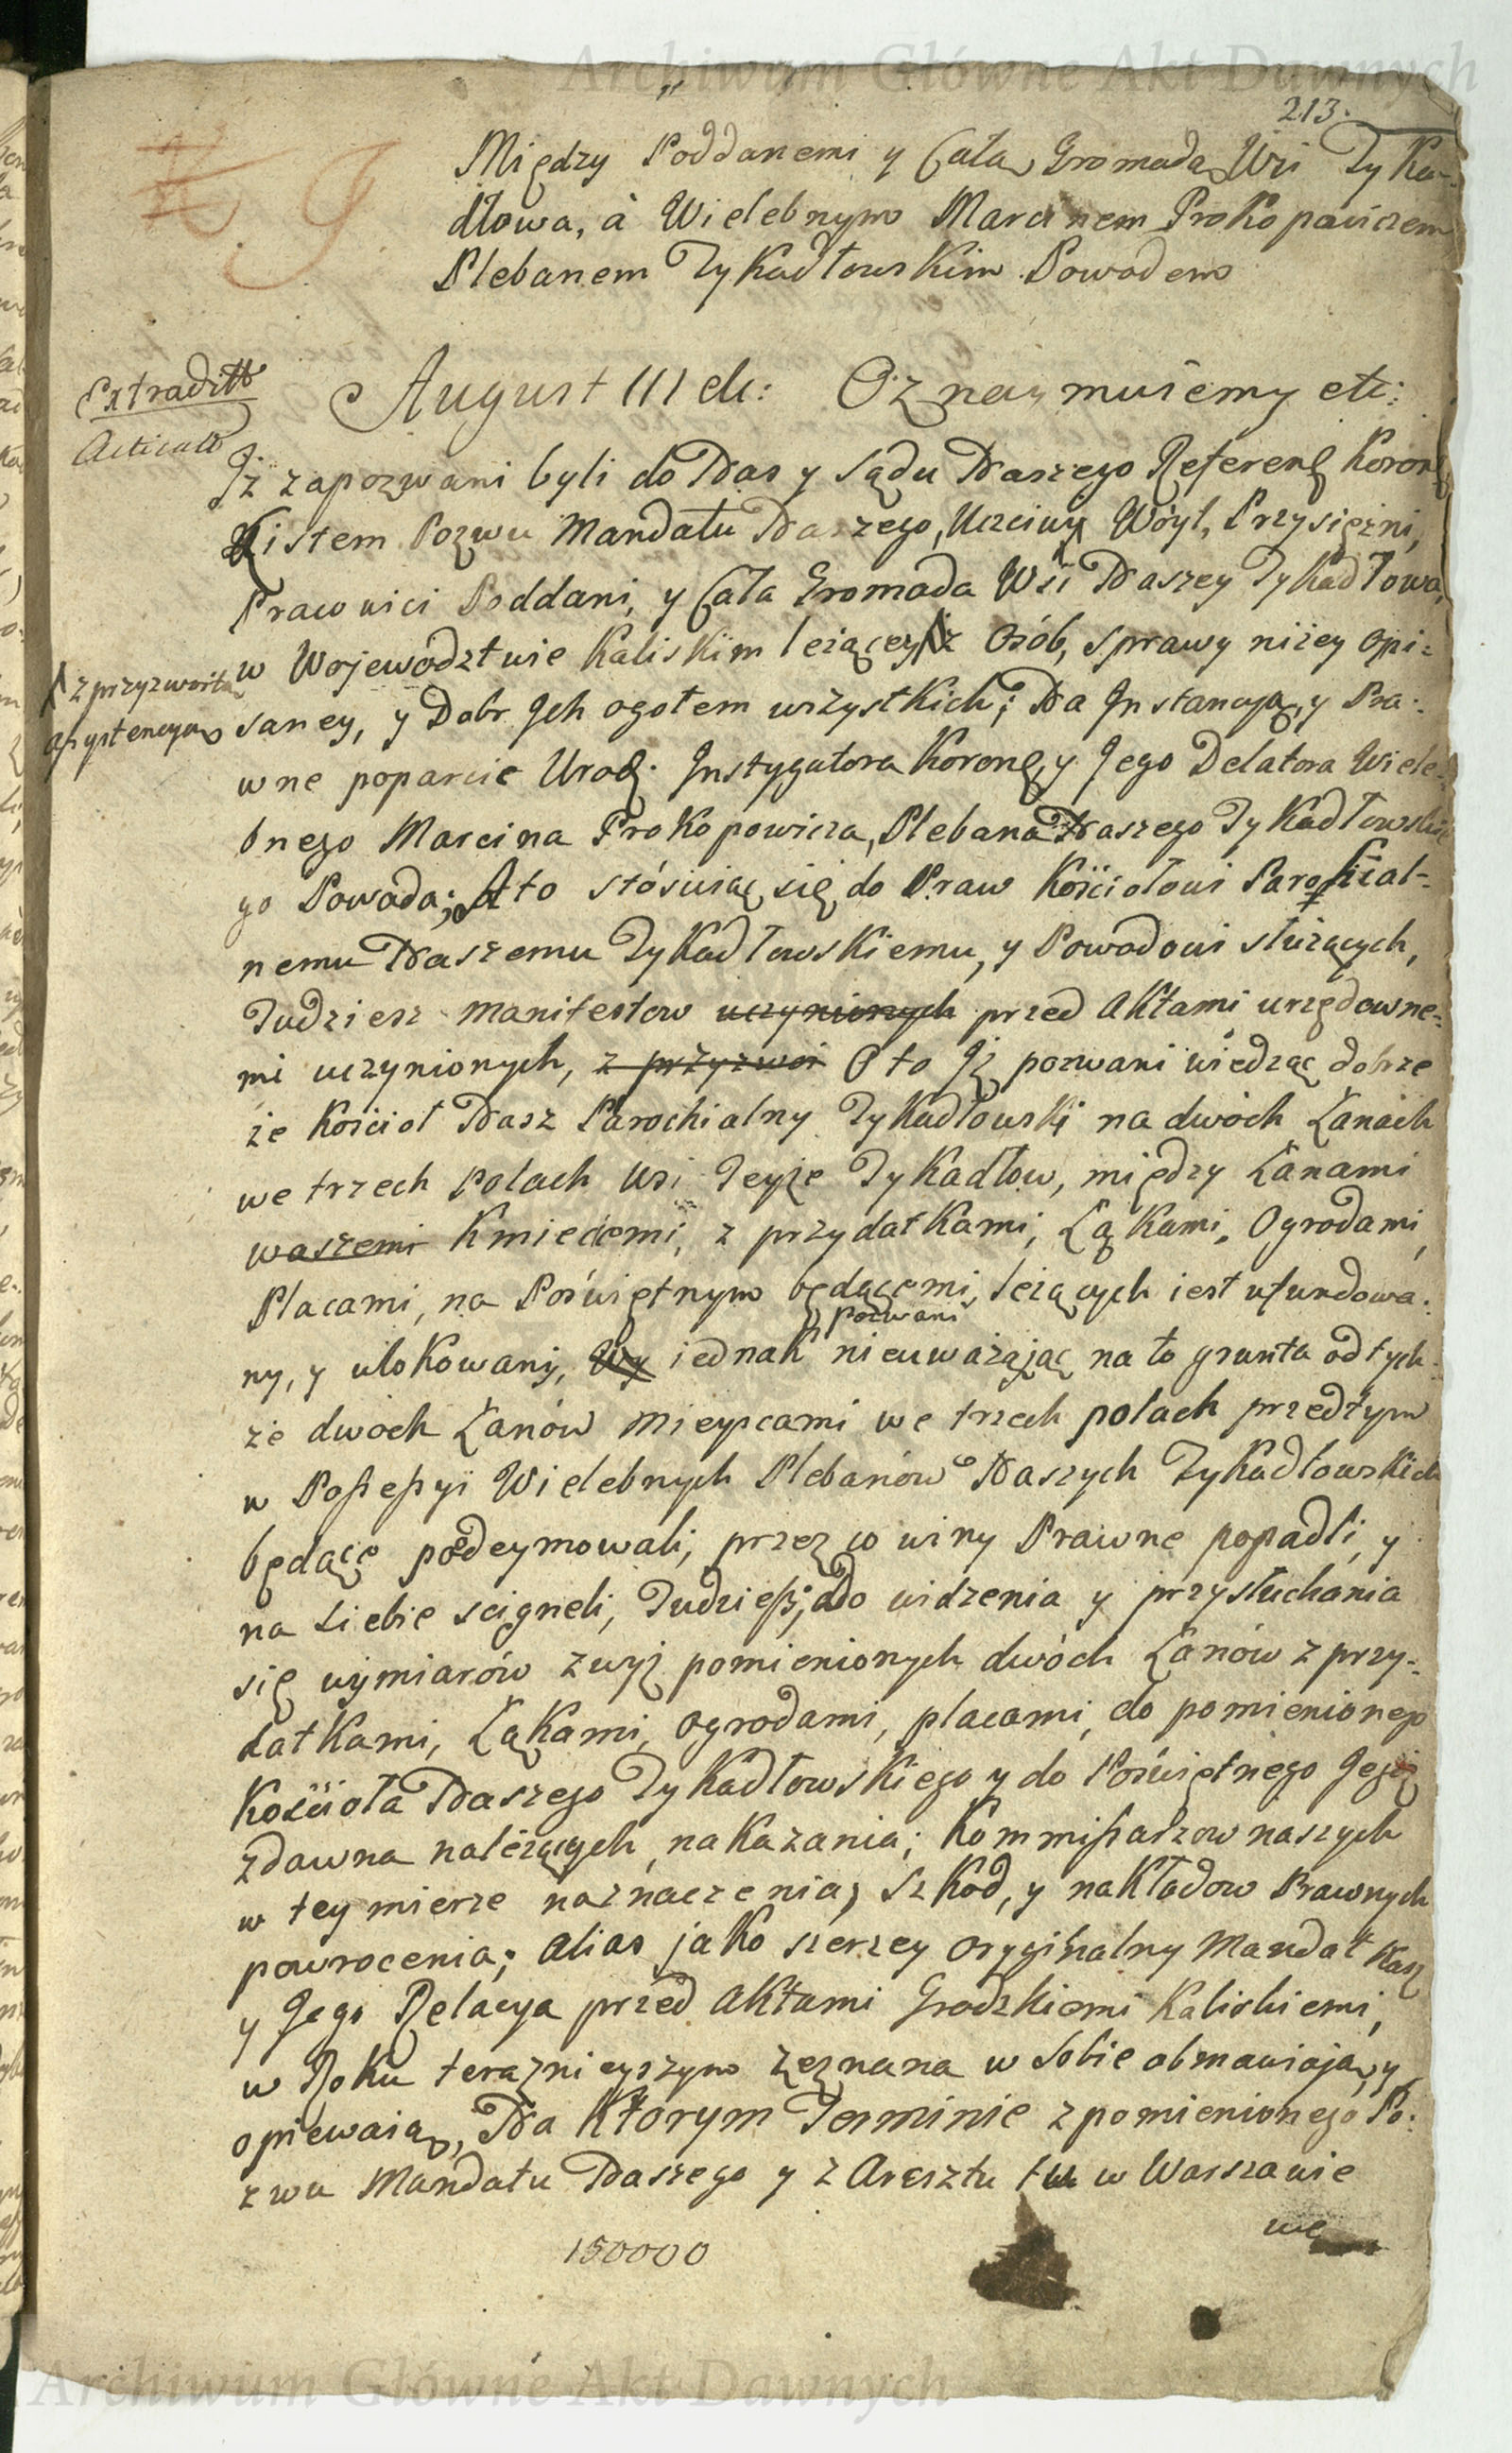 Archiwum Główne Akt Dawnych
213.
Między Poddanemi y Całą Gromadą Wsi Tyka-
dłowa, à Wielebnym Marcinem Prokopowiczem
Plebanem Tykadłowskim Powodem
Extraditt
August III etc: Oznaymuiemy etc:
Iż zapozwani byli do Nas y Sądu Naszego Referenẹ Koronẹ
Listem Pozwu Mandatu Naszego, Uczciwy Wóyt, Przysiężni,
Prawnici Poddani, y Cała Gromada Wsi Naszey Tykadłowa,
w Wojewodztwie Kaliskim leżącey z Osób, sprawy niżey opi-
z przyzwoitą
assystencyą
saney, y Dobr Ich ogołem wszystkich; Na Instancyą, y Pra-
wne poparcie Urodz. Instygatora Koronẹ, y Jego Delatora Wiele-
bnego Marcina Prokopowicza, Plebana Naszego Tykadłowskie
go Powoda; A to stósuiąc się do Praw Kościołowi Parochial-
nemu Naszemu Tykadłowskiemu, y Powodowi służących,
Tudziesz manifestow uczynionych przed Aktami urzędowne-
mi uczynionych, z przyzwoi O to Iż pozwani wiedząc dobrze
że Kościoł Nasz Parochialny Tykadłowski na dwóch Łanach
we trzech polach wsi Teyże Tykadłow, między Łanami
waszemi Kmiecemi, z przydatkami, Łąkami, Ogrodami,
Placami, na Poświętnym będącemi, leżących iest ufundowa-
pozwani
ny, y ulokowany, Wy iednak nieuważając na to grunta od tych-
że dwóch Łanów mieyscami we trzech polach przedtym
w Possessyi Wielebnych Plebanów Naszych Tykadłowskich
będącę podeymowali, przez co winy Prawne popadli, y
na siebie scigneli, Tudziesz, do widzenia y przysłuchania
się wymiarów zwyż pomienionych dwóch Łanów z przy-
datkami, Łąkami, ogrodami, placami, do pomienionego
Kościoła Naszego Tykadłowskiego y do Poświętnego Jegoż
zdawna należących, nakazania; Kommissarzow naszych
w tey mierze naznaczenia, Szkód, y nakładow Prawnych
powrocenia; alias jako szerzey oryginalny Mandat Nasz
y Jego Relacya przed Aktami Grodzkiemi Kaliskiemi,
w Roku teraznieyszym zeznana w sobie obmawiają, y
opiewaią, Na Którym Terminie z pomienionego Po-
zwu Mandatu Naszego y z Aresztu tu w Warszawie
wẹ
150000
Archiwum Główne Akt Dawnych